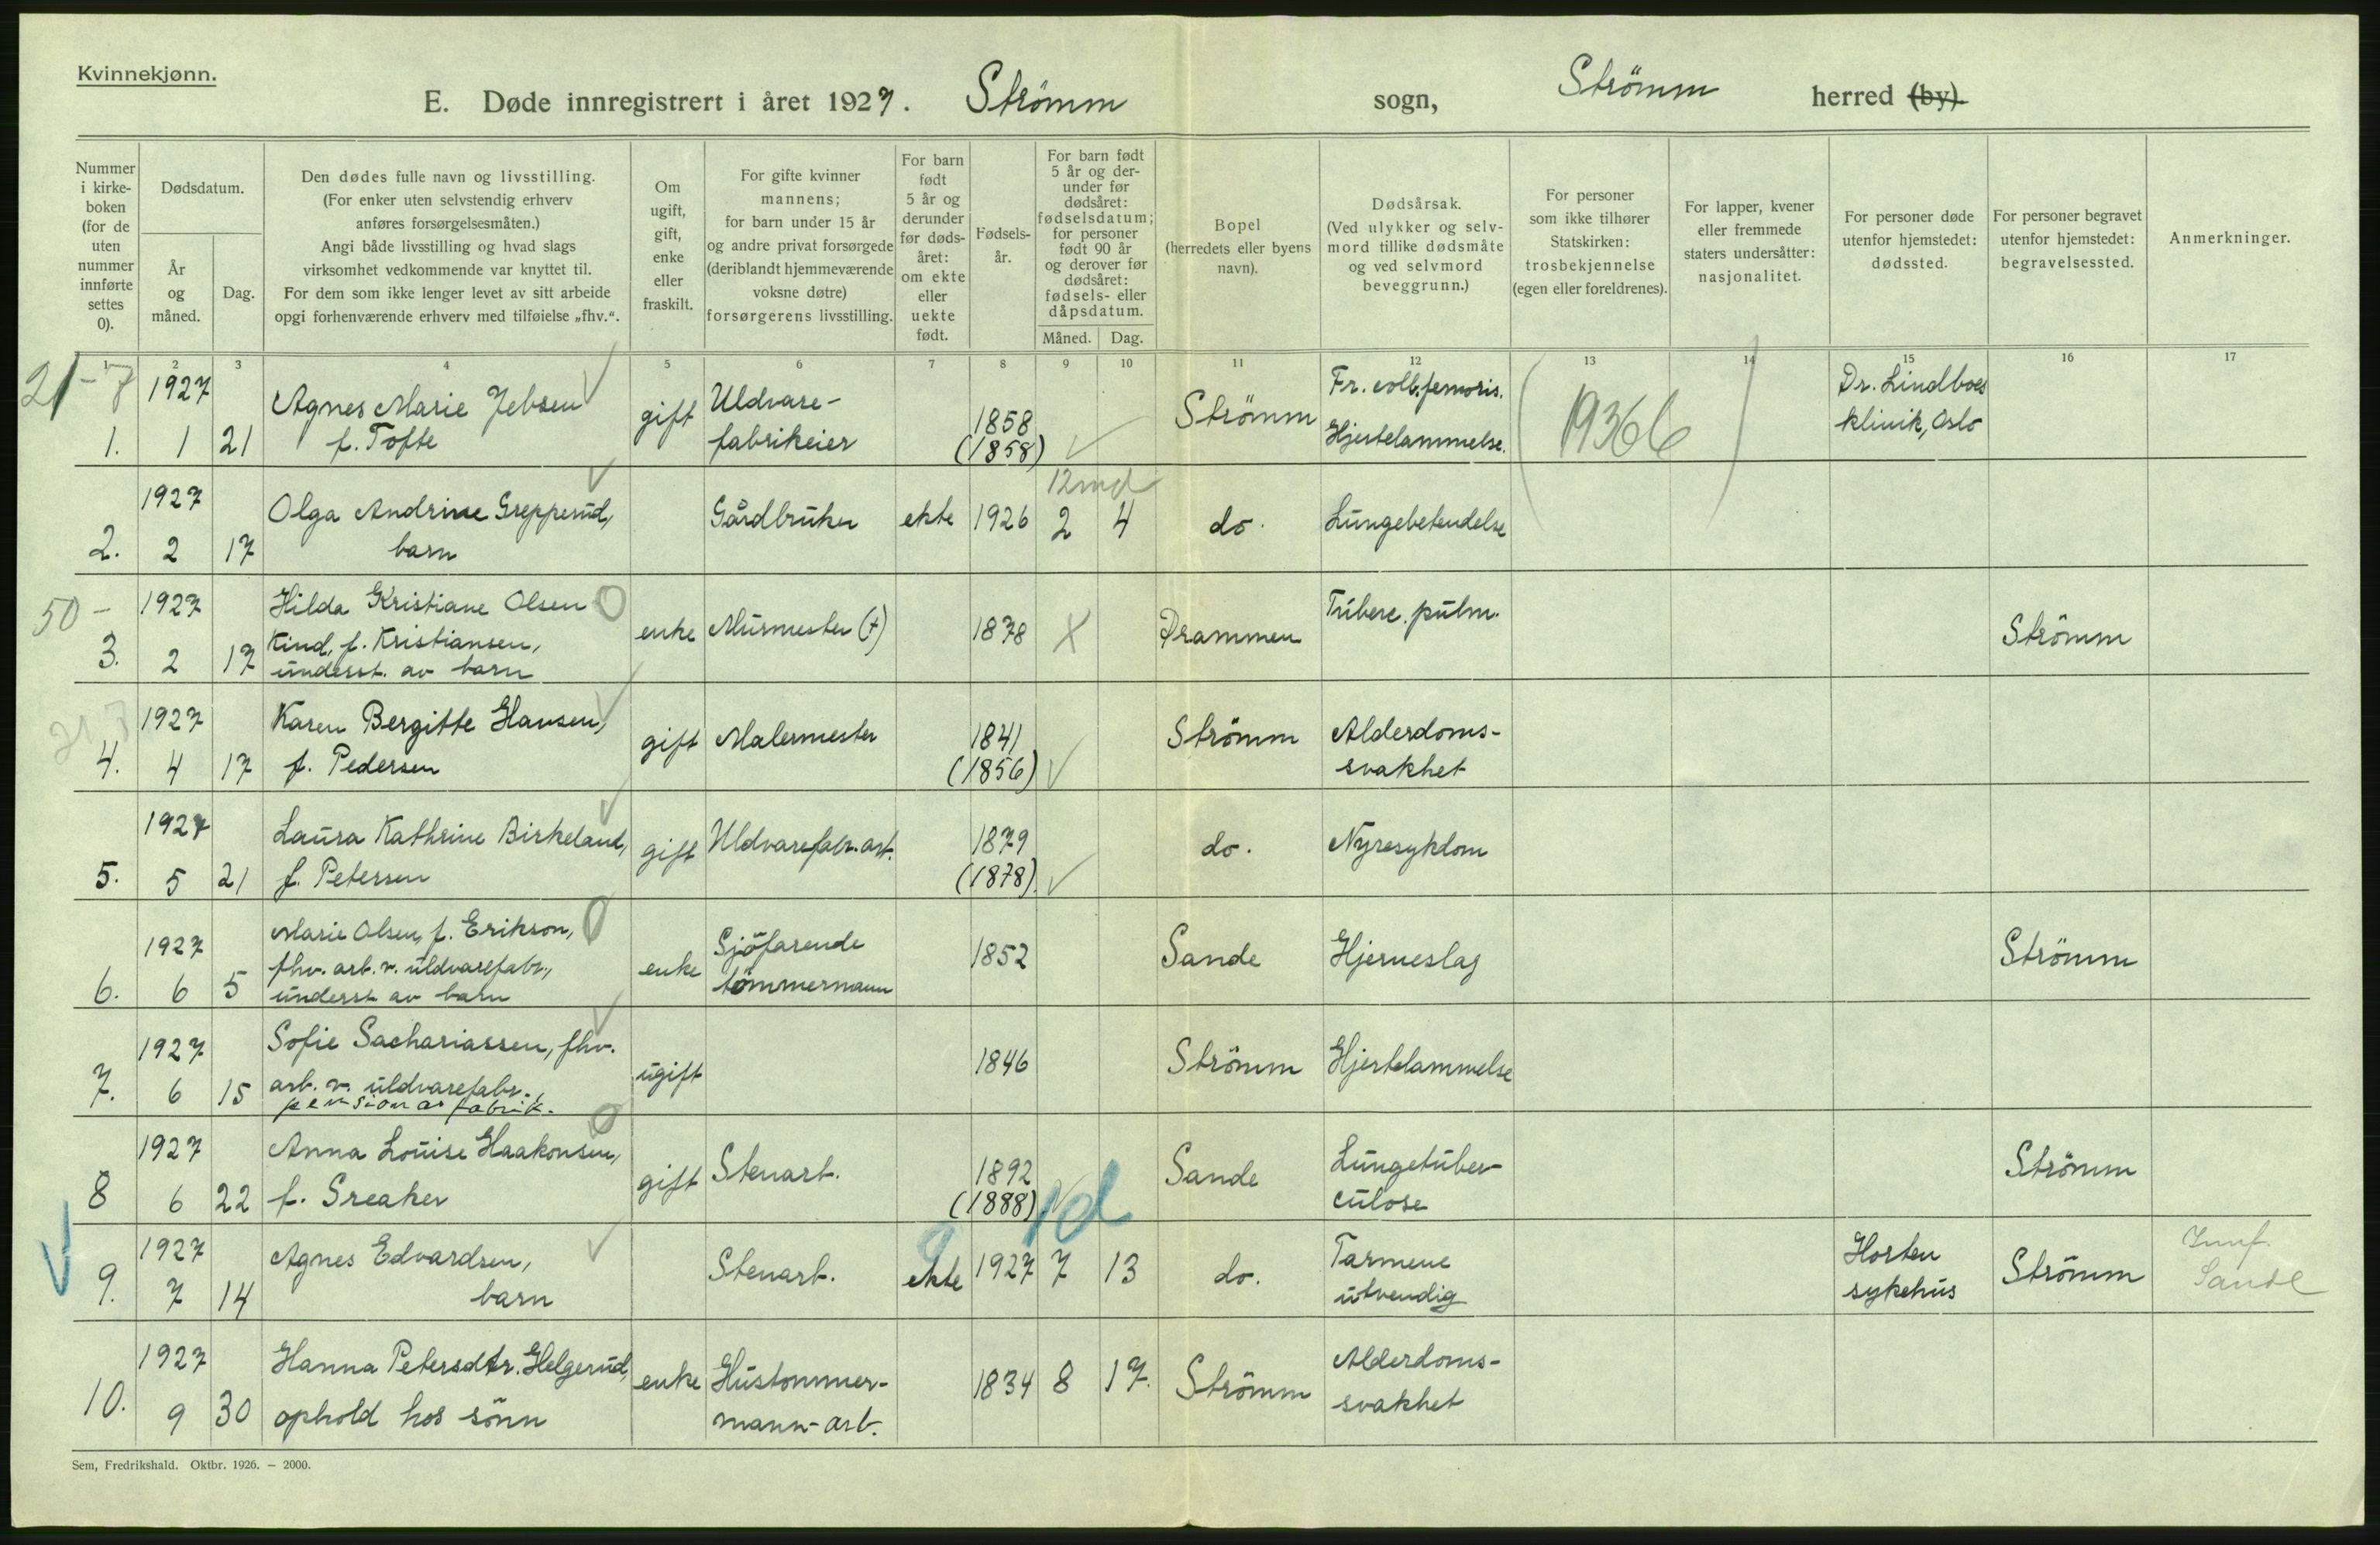 Kvinnekjønn.
E. Døde innregistrert i året 1927. Strömm sogn, Strömm herred (by).
Nummer i kirke-boken (for de uten nummer innførte settes 0).
Dødsdatum.
År og måned.
Dag.
Den dødes fulle navn og livsstilling.
(For enker uten selvstendig erhverv
anføres forsørgelsesmåten.)
Angi både livsstilling og hvad slags
virksomhet vedkommende var knyttet til.
For dem som ikke lenger levet av sitt arbeide
opgi forhenværende erhverv med tilføielse „fhv.“.
Om ugift, gift, enke eller fraskilt.
For gifte kvinner
mannens;
for barn under 15 år
og andre privat forsørgede
(deriblandt hjemmeværende
voksne døtre)
forsørgerens livsstilling.
For barn født 5 år og derunder før døds-året: om ekte eller uekte født.
Fødsels-år.
For barn født 5 år og der-under før dødsåret: fødselsdatum; for personer født 90 år og derover før dødsåret: fødsels- eller dåpsdatum.
Måned. Dag.
Bopel
(herredets eller byens
navn).
Dødsårsak.
(Ved ulykker og selv-
mord tillike dødsmåte
og ved selvmord
beveggrunn.)
For personer
som ikke tilhører
Statskirken:
trosbekjennelse
(egen eller foreldrenes).
For lapper, kvener
eller fremmede
staters undersåtter:
nasjonalitet.
For personer døde
utenfor hjemstedet:
dødssted.
For personer begravet
utenfor hjemstedet:
begravelsessted.
Anmerkninger.
1 2 3 4 5 6 7 8 9 10 11 12 13 14 15 16 17
21-7 1927 Agnes Marie Jebsen gift Uldvare- 1858 Strömm Fr. coll. femoris. (19366) Dr. Lindboes
1. 1 21 f. Tofte fabrikeier (1858) Hjertelammelse. klinik, Oslo
12 md
1927 Olga Andrine Grepperud, Gårdbruker ekte 1926 2 4 do. Lungebetendelse
2. 2 17 barn
50 - 1927 Hilda Kristiane Olsen enke Murmester (+) 1878 X Drammen Tuberc. pulm. Strömm
3. 2 17 Kind, f. Kristiansen,
underst. av barn
1927 Karen Bergitte Hansen, gift Malermester 1841 Strömm Alderdoms-
4. 4 17 f. Pedersen (1856) svakhet
1927 Laura Kathrine Birkeland, gift Uldvarefabr. arb. 1879 do. Nyresykdom
5. 5 21 f. Petersen (1878)
1927 Marie Olsen, f. Erikson, enke Sjöfarende 1852 Sande Hjerneslag Strömm
fhv. arb. v. uldvarefabr., tömmermann
6. 6 5 underst av barn
1927 Sofie Sachariassen, fhv. ugift 1846 Strömm Hjertelammelse
7. 6 15 arb. v. uldvarefabr.,
pension av fabrik.
1927 Anna Louise Haakonsen, gift Stenarb. 1892 Sande Lungetuber- Strömm
8 6 22 f. Sreaker (1888) culose
1d
1927 Agnes Edvardsen, Stenarb. ekte 1927 7 13 do. Tarmene Horten Strömm
9. 7 14 barn utvendig sykehus Sande
1927 Hanna Petersdtr. Helgerud, enke Hustømmer- 1834 8 17. Strömm Alderdoms-
10. 9 30 ophold hos sönn mann-arb. svakhet
Sem, Fredrikshald. Oktbr. 1926. – 2000.